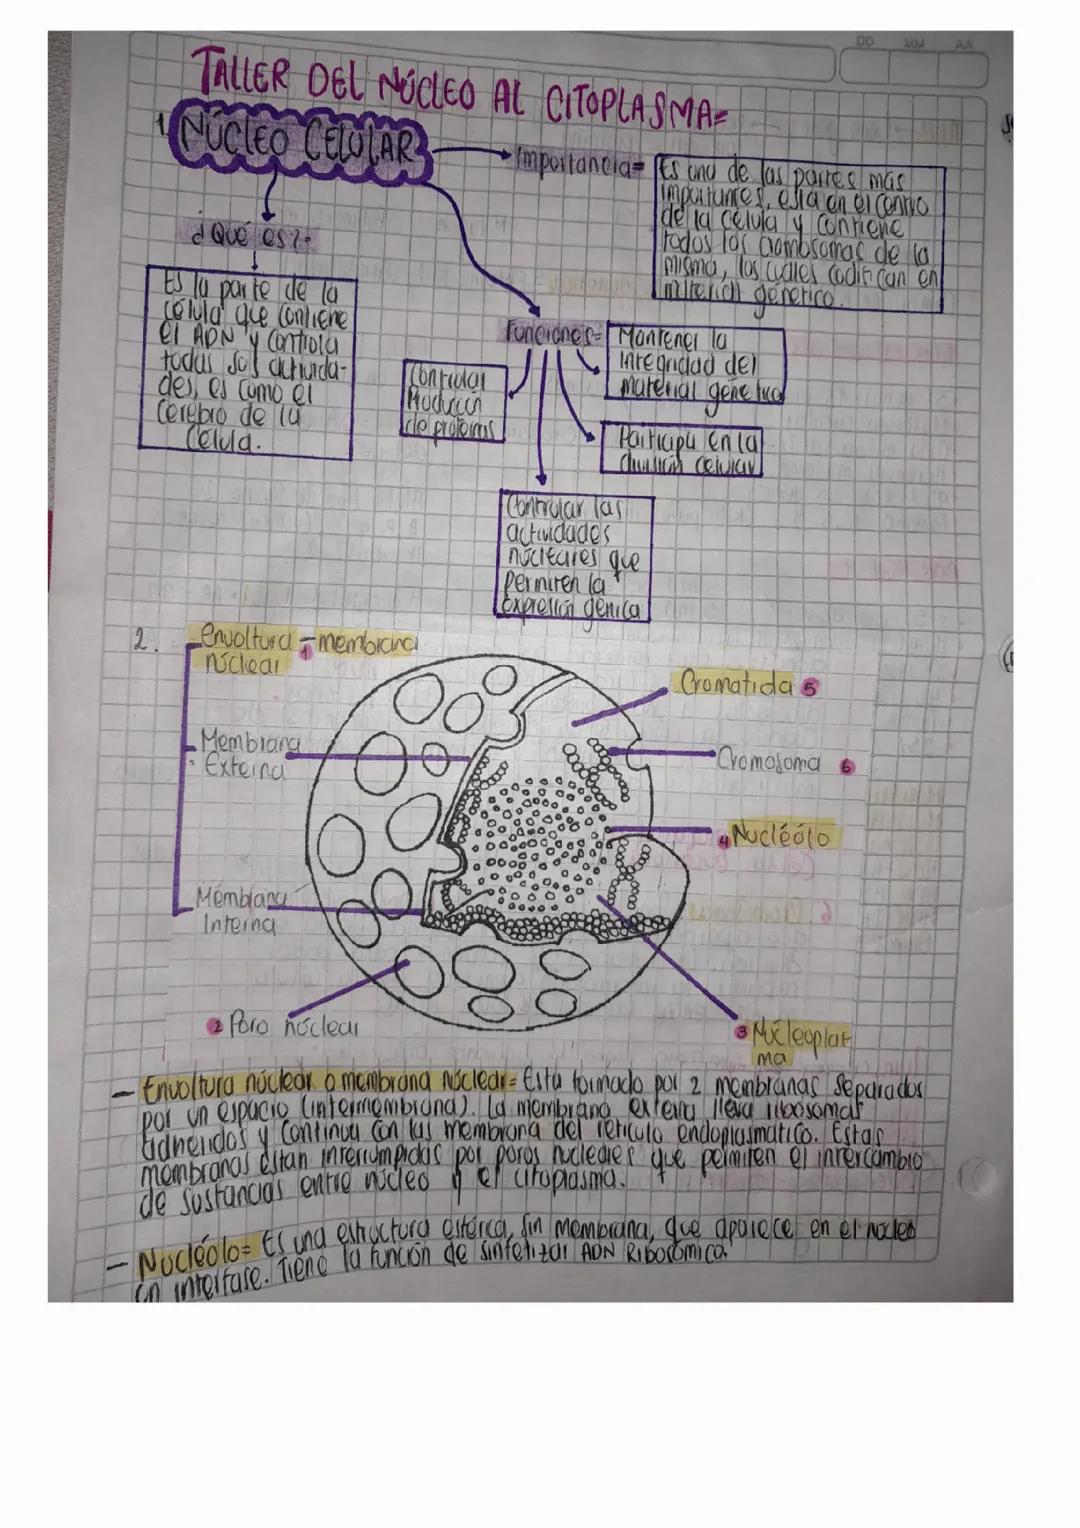 DD MM AA
TALLER DEL NÚCLEO AL CITOPLASMA=
1. NÚCLEO CELULAR
Importancia=
Es una de las partes más
importantes, esta en el centro
de la célula y contiene
todos los cromosomas de la
misma, los cuales codifican en
material génetico.
¿Qué es?=
Es la parte de la
célula que contiene
el ADN y controla
todas sus activida-
des, es como el
cerebro de la
célula.
Funciones=
Mantener la
integridad del
material génetico
Controlar
Producción
de proteínas
Participa en la
división celular
Controlar las
actividades
núcleares que
permiten la
expresión génica
2.
Envoltura - membrana
núclear 1
Cromatida 5
Membrana
Externa
Cromosoma 6
4 Nucléolo
Membrana
Interna
2 Poro núclear
3 Núcleoplas
ma
- Envoltura núclear o membrana núclear= Esta formado por 2 membranas separados
por un espacio (intermembrana). La membrana externa lleva ribosomas
adheridos y continua con las membrana del reticulo endoplasmatico. Estas
membranas estan interrumpidas por poros nucleares que permiten el intercambio
de sustancias entre núcleo y el citoplasma.
- Nucléolo= Es una estructura esférica, sin membrana, que aparece en el nucleo
en interfase. Tiene la función de sintetizar ADN Ribosomica.